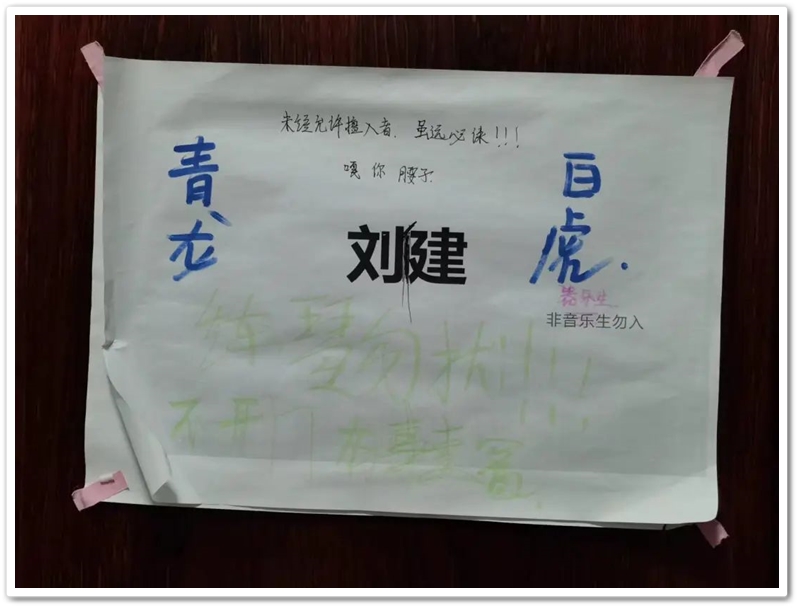 未经允许擅入者，虽远必诛!!!
嘎你腰子
青龙
白虎.
刘健
器乐生
非音乐生勿入
练琴勿扰!!!
不开门